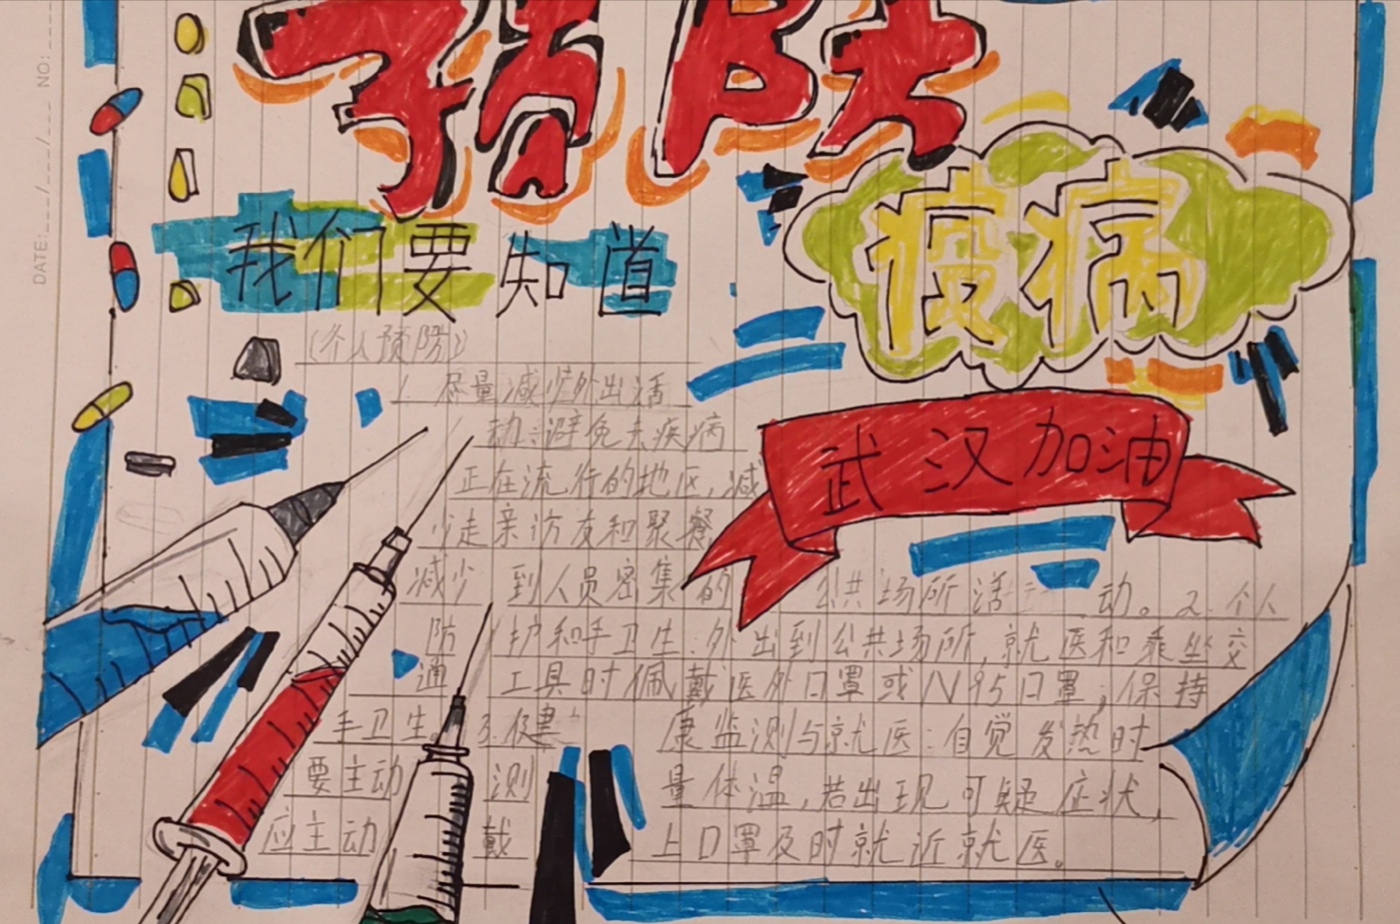 NO:
DATE:
预防
疫病
我们要知道
(个人预防)
1.尽量减少外出活
动:避免去疾病
正在流行的地区,减
少走亲访友和聚餐
减少到人员密集的公共场所活动。2.个人
防护和手卫生:外出到公共场所,就医和乘坐交
通工具时佩戴医外口罩或N95口罩,保持
手卫生。3.健康监测与就医:自觉发热时
要主动测量体温,若出现可疑症状,
应主动戴上口罩及时就近就医。
武汉加油